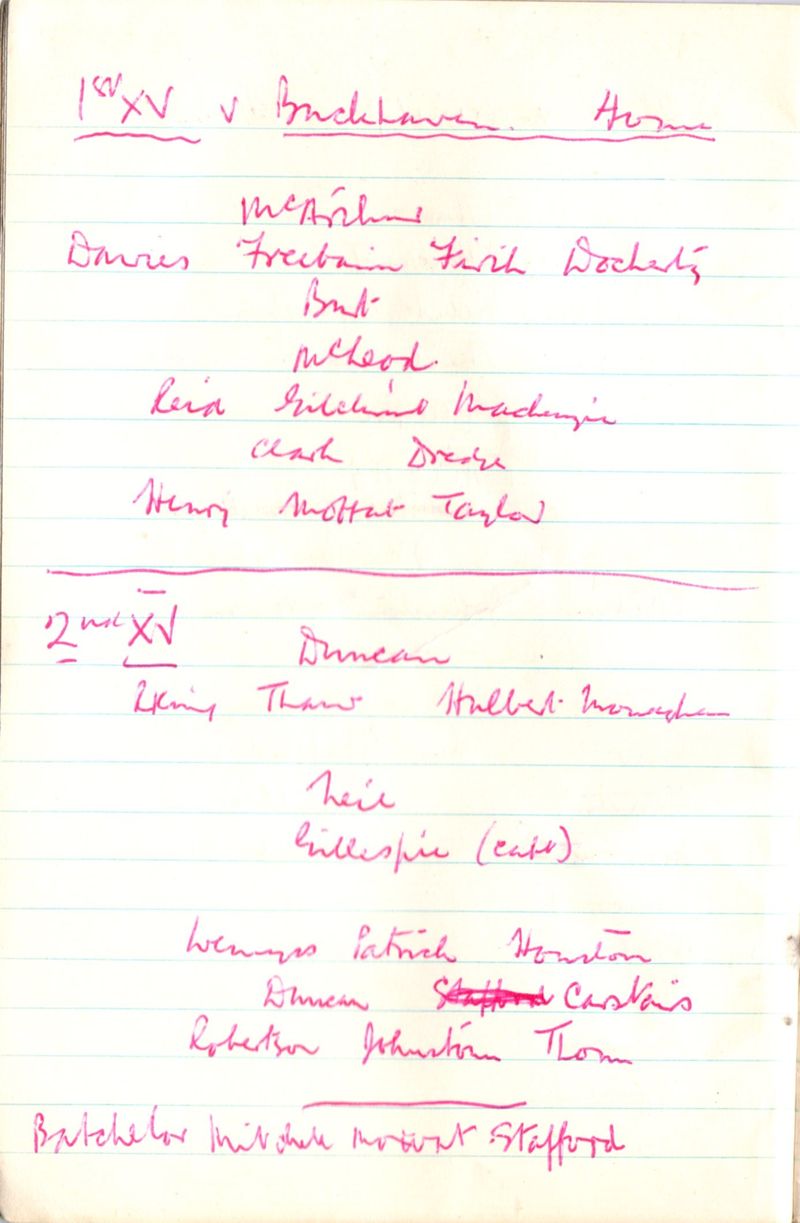 1st XV v Buckhaven. Home
McArthur
Davies Freebairn Firth Docherty
Burt
McLeod.
Reid Gilchrist Mackenzie
Clark Dredge
Henry Moffat Taylor
2nd XV Duncan
Thaw Hulbert Monaghan
Neil
Gillespie (capt)
Wemyss Patrick Houston
Duncan Stafford Carstairs
Robertson Johnstone Thom
Batchelor Mitchell Mowat Stafford